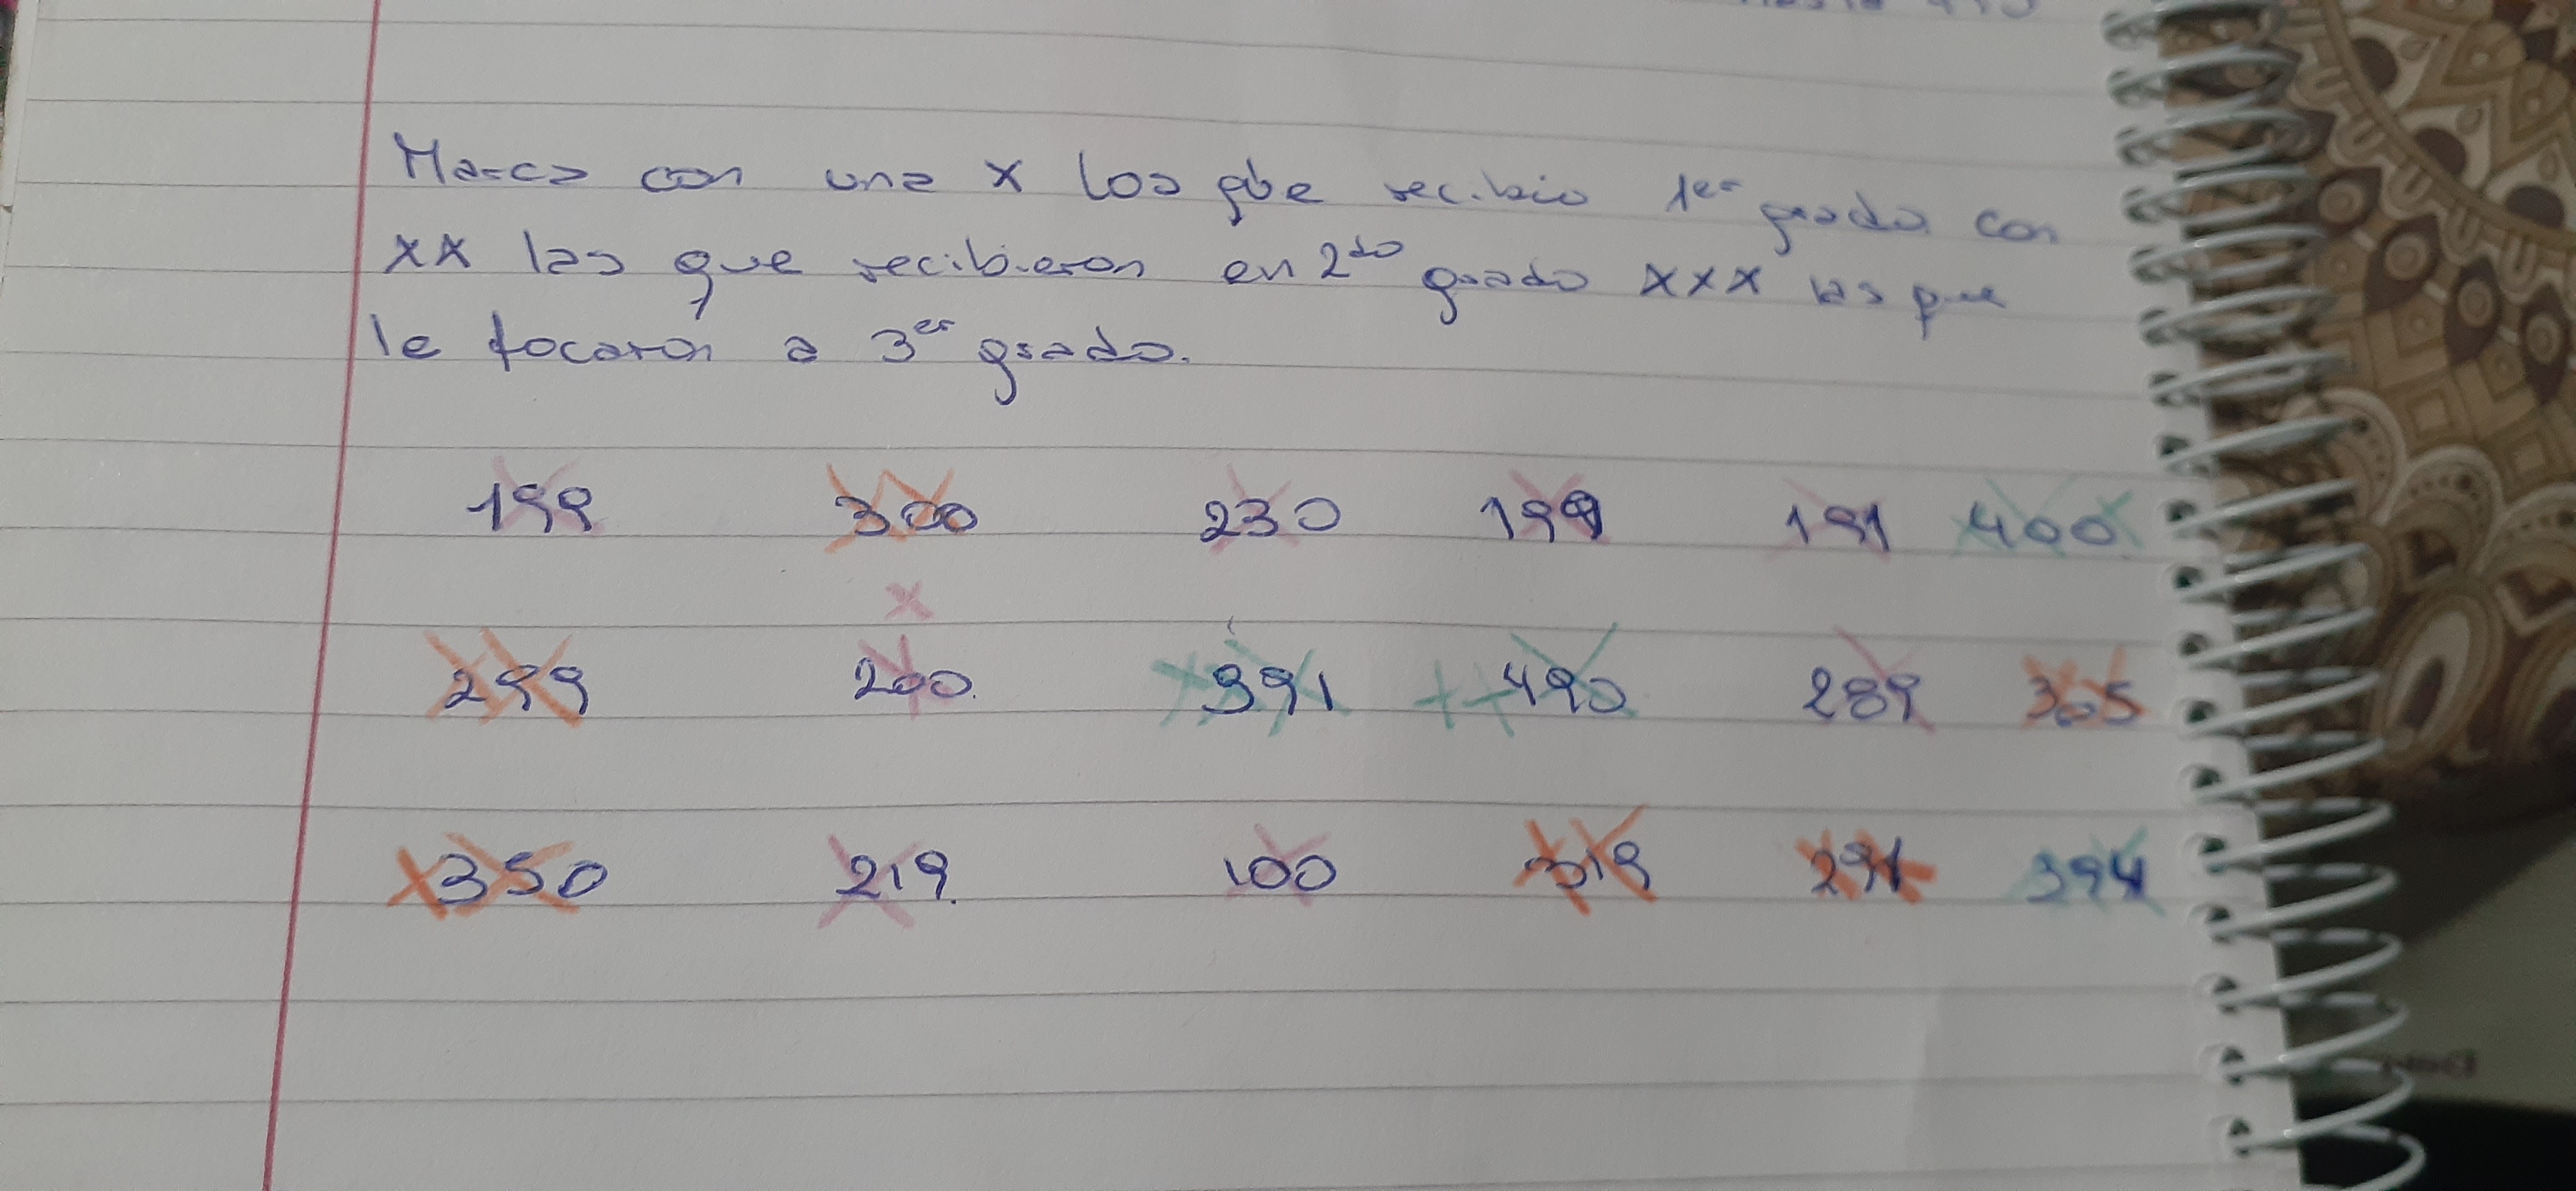 Hasta 410
Marca con una x los que recibio 1er grado con
xx las que recibieron en 2do grado xxx las que
le tocaron a 3er grado.
199 300 230 199 191 400
x
299 200. 391 490 289 305
350 219. 100 319 291 394